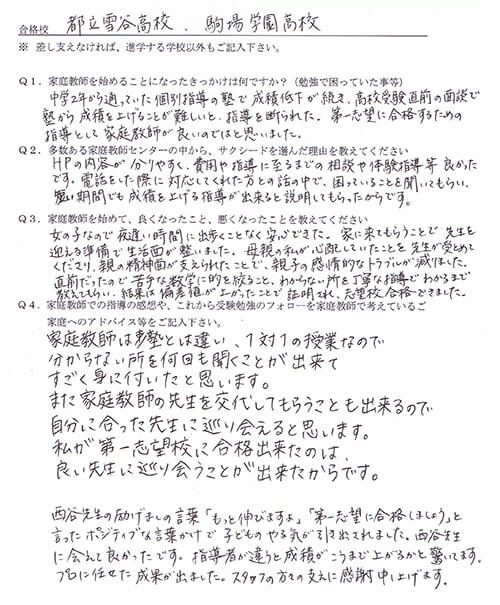 合格校 都立雪谷高校、駒場学園高校
※ 差し支えなければ、進学する学校以外もご記入下さい。
Q1．家庭教師を始めることになったきっかけは何ですか？（勉強で困っていた事等）
中学2年から通っていた個別指導の塾で成績低下が続き、高校受験直前の面談で
塾から成績を上げることが難しいと、指導を断られた。第一志望に合格するための
指導として家庭教師が良いのではと思いました。
Q2．多数ある家庭教師センターの中から、サクシードを選んだ理由を教えてください
HPの内容が分りやすく、費用や指導に至るまでの相談や体験指導等良かった
です。電話をした際に対応してくれた方との話の中で、困っていることを聞いてもらい、
短い期間でも成績を上げる指導が出来ると説明してもらったからです。
Q3．家庭教師を始めて、良くなったこと、悪くなったことを教えてください
女の子なので夜遅い時間に出歩くことなく安心できた。家に来てもらうことで先生を
迎える準備で生活面が整いました。母親の私が心配していたことを先生が受とめて
くださり、親の精神面が支えられたことで、親子の感情的なトラブルが減りました。
直前だったので苦手な数学に的を絞ること、わからない所を丁寧な指導でわかるまで
教えてもらい、結果は偏差値が上がったことで証明され、志望校合格できました。
Q4．家庭教師での指導の感想や、これから受験勉強のフォローを家庭教師で考えているご
家庭へのアドバイス等をご記入下さい。
家庭教師は塾とは違い、1対1の授業なので
分からない所を何回も聞くことが出来て
すごく身に付いたと思います。
また家庭教師の先生を交代してもらうことも出来るので
自分に合った先生に巡り会えると思います。
私が第一志望校に合格出来たのは、
良い先生に巡り会うことが出来たからです。
西谷先生の励げましの言葉「もっと伸びますよ」「第一志望に合格しましょう」と
言ったポジティブな言葉かけで子どものやる気が引き出されました。西谷先生
に会えて良かったです。指導者が違うと成績がこうまで上がるかと驚いてます。
プロに任せた成果が出ました。スタッフの方々の支えに感謝申し上げます。